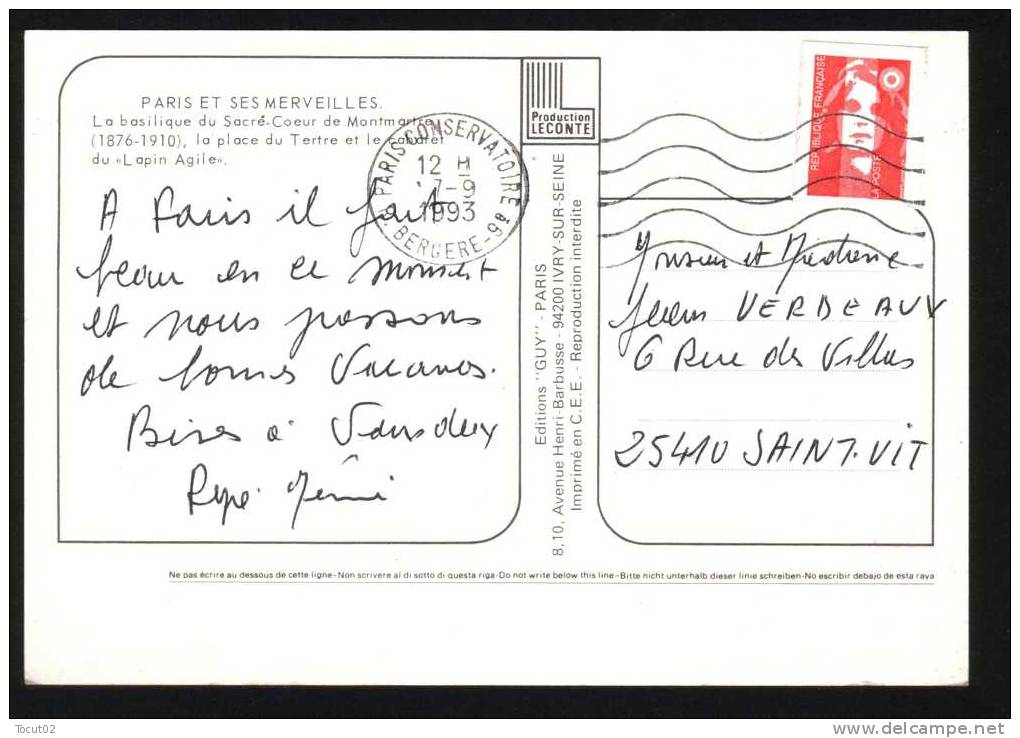 PARIS ET SES MERVEILLES.
La basilique du Sacré-Coeur de Montmartre
(1876-1910), la place du Tertre et le cabaret
du «Lapin Agile».
A Paris il fait
beau en ce moment
et nous passons
de bonnes Vacances.
Bises à Vous deux
Pépé Mémé
PARIS CONSERVATOIRE 36
R. BERGERE-9e
12 H
7-9
1993
Production
LECONTE
Editions "GUY" - PARIS
8,10, Avenue Henri-Barbusse - 94200 IVRY-SUR-SEINE
Imprimé en C.E.E. - Reproduction interdite
REPUBLIQUE FRANÇAISE
LA POSTE
Monsieur et Madame
Jean VERDEAUX
6 Rue des Villas
25410 SAINT-VIT
Ne pas écrire au dessous de cette ligne-Non scrivere al di sotto di questa riga-Do not write below this line-Bitte nicht unterhalb dieser linie schreiben-No escribir debajo de esta raya
Tocut02
delcampe.net